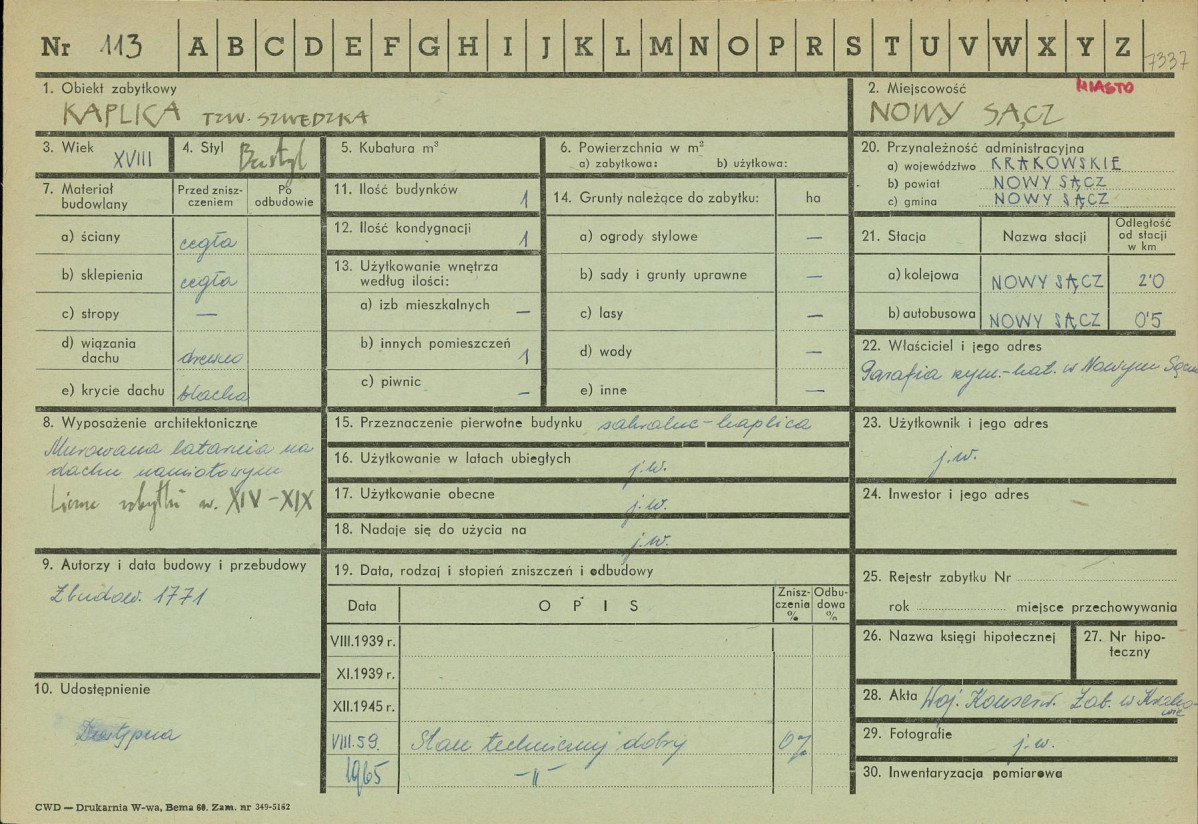 Nr 113 A B C D E F G H I J K L M N O P R S T U V W X Y Z 7337
1. Obiekt zabytkowy
KAPLICA TZW. SZWEDZKA
2. Miejscowość MIASTO
NOWY SĄCZ
3. Wiek XVIII
4. Styl
5. Kubatura m³
6. Powierzchnia w m²
a) zabytkowa: b) użytkowa:
20. Przynależność administracyjna
a) województwo KRAKOWSKIE
b) powiat NOWY SĄCZ
c) gmina NOWY SĄCZ
7. Materiał budowlany
Przed znisz-
czeniem
Po
odbudowie
a) ściany cegła
b) sklepienia cegła
c) stropy —
d) wiązania
dachu drewno
e) krycie dachu blacha
11. Ilość budynków 1
12. Ilość kondygnacji 1
13. Użytkowanie wnętrza
według ilości:
a) izb mieszkalnych —
b) innych pomieszczeń 1
c) piwnic —
14. Grunty należące do zabytku: ha
a) ogrody stylowe —
b) sady i grunty uprawne —
c) lasy —
d) wody —
e) inne —
21. Stacja Nazwa stacji
Odległość
od stacji
w km
a) kolejowa NOWY SĄCZ 2'0
b) autobusowa NOWY SĄCZ 0'5
22. Właściciel i jego adres
Parafia rzym.-kat. w Nowym Sączu
8. Wyposażenie architektoniczne
Murowana latarnia na
dachu namiotowym
Liczne zabytki w. XIV-XIX
15. Przeznaczenie pierwotne budynku sakralne-kaplica
16. Użytkowanie w latach ubiegłych j.w.
17. Użytkowanie obecne j.w.
18. Nadaje się do użycia na j.w.
23. Użytkownik i jego adres
j.w.
24. Inwestor i jego adres
9. Autorzy i data budowy i przebudowy
Zbudow. 1771
19. Data, rodzaj i stopień zniszczeń i odbudowy
Data OPIS
Znisz-
czenia
%
Odbu-
dowa
%
VIII.1939 r.
XI.1939 r.
XII.1945 r.
VIII.59. Stan techniczny dobry 0%
1965 -"-
25. Rejestr zabytku Nr
rok miejsce przechowywania
26. Nazwa księgi hipotecznej
27. Nr hipo-
teczny
10. Udostępnienie
Dostępna
28. Akta Woj. Konserw. Zab. w Krako-
wie
29. Fotografie j.w.
30. Inwentaryzacja pomiarowa
CWD — Drukarnia W-wa, Bema 60. Zam. nr 349-5162